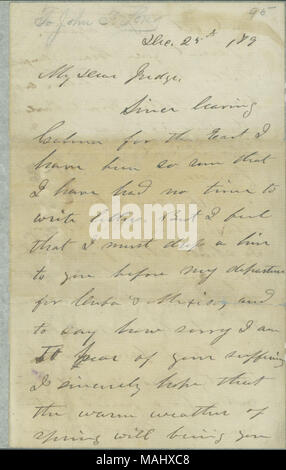 To John F. Long
95
Dec. 25th 189
My dear Judge,
Since leaving
Galena for the East I
have been so run that
I have had no time to
write letters. But I feel
that I must drop a line
to you before my departure
for Cuba & Mexico, and
to say how sorry I am
to hear of your suffering
I sincerely hope that
the warm weather of
spring will bring you
alamy
Image ID: MAHXC8
www.alamy.com